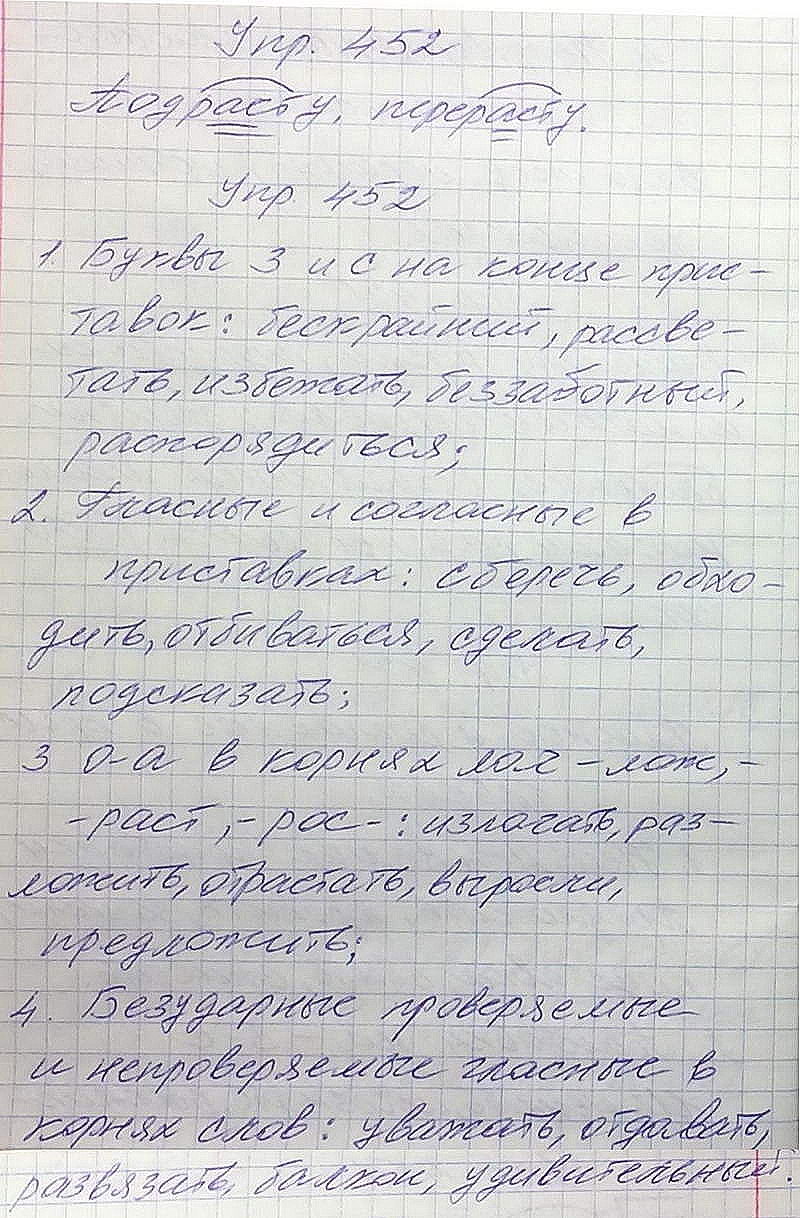 Упр. 452
Подрасту, перерасту.
Упр. 452
1. Буквы З и С на конце прис-
тавок: бескрайний, рассве-
тать, избежать, беззаботный,
распорядиться;
2. Гласные и согласные в
приставках: сберечь, обхо-
дить, отбиваться, сделать,
подсказать;
3 О-а в корнях лаг -лож,-
-раст,-рос-: излагать, раз-
ложить, отрастать, выросли,
предложить;
4. Безударные проверяемые
и непроверяемые гласные в
корнях слов: уважать, отдавать,
развязать, балкон, удивительный.